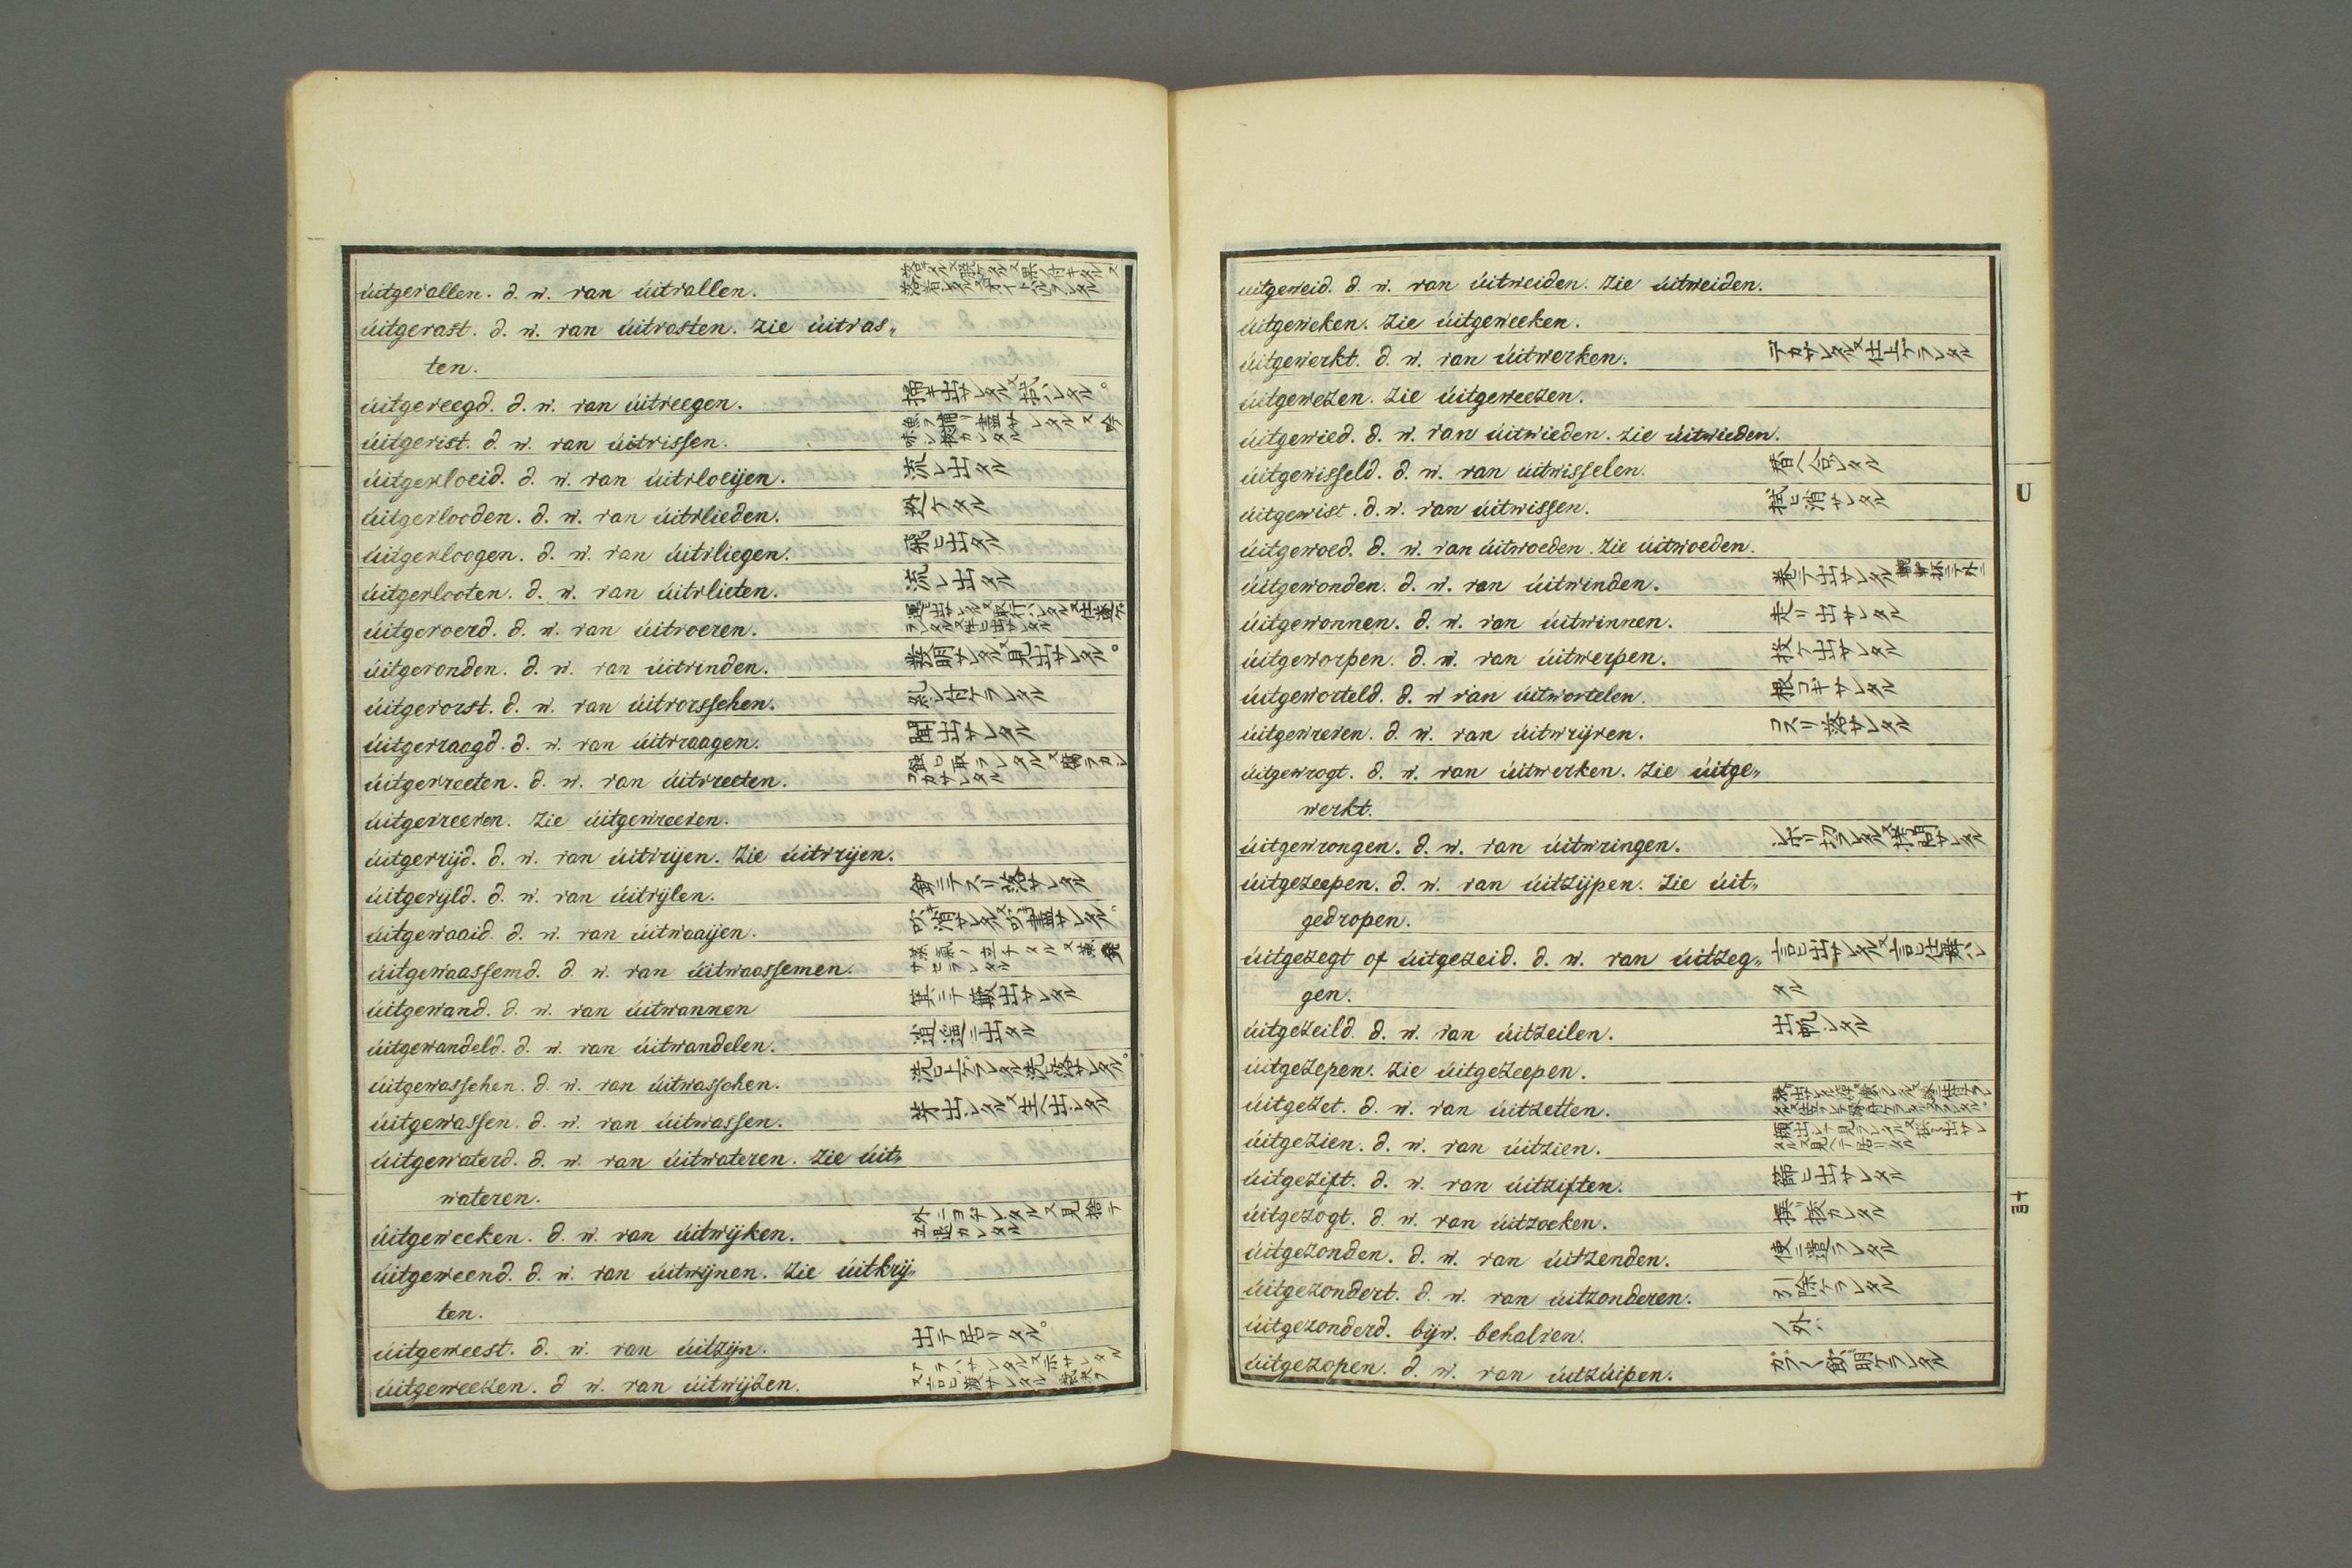 úitgevallen. d. w. van úitvallen.
úitgevast. d. w. van úitvasten. zie úitvas„
ten.
úitgeveegd. d. w. van úitveegen. 掃キ出サレタル又拭ハレタル。
úitgevist. d. w. van úitvissen. 魚ヲ捕リ盡サレタル又吟味シ抜カレタル
úitgevloeid. d. w. van úitvloeijen. 流レ出タル
úitgevlooden. d. w. van úitvlieden. 迯ケタル
úitgevloogen. d. w. van úitvliegen. 飛ヒ出タル
úitgevlooten. d. w. van úitvlieten. 流レ出タル
úitgevoerd. d. w. van úitvoeren.
úitgevonden. d. w. van úitvinden. 發明サレタル又見出サレタル。
úitgevorst. d. w. van úitvorsschen. 糺シ付ケラレタル
úitgevraagd. d. w. van úitvraagen. 聞出サレタル
úitgevreeten. d. w. van úitvreeten.
úitgevreeven. zie úitgewreeven.
úitgevrijd. d. w. van úitvrijen. zie úitvrijen.
úitgevijld. d. w. van úitvijlen. 鑢ニテスリ落サレタル
úitgewaaid. d. w. van úitwaaijen. 吹キ消サレタル又吹キ盡サレタル。
úitgewaassemd. d. w. van úitwaassemen. 蒸氣ノ立チタル又蒸発サセラレタル
úitgewand. d. w. van úitwannen 箕ニテ簸出サレタル
úitgewandeld. d. w. van úitwandelen. 逍遥ニ出タル
úitgewasschen. d. w. van úitwasschen. 洗ヒ上ケラレタル洗ヒ落サレタル。
úitgewassen. d. w. van úitwassen. 芽出シタル又生へ出シタル
úitgewaterd. d. w. van úitwateren. zie úit„
wateren.
úitgeweeken. d. w. van úitwijken. 外ニヨケレタル又見捨テ立退カレタル
úitgeweend. d. w. van úitwijnen. zie úitkrij„
ten.
úitgeweest. d. w. van úitzijn. 出テ居リタル。
úitgeweezen. d w. van úitwijzen.
uitgeweid. d. w. van úitweiden. zie úitweiden.
úitgeweken. zie úitgeweeken.
úitgewerkt. d. w. van úitwerken. テカサレタル又仕上ケラレタル
úitgewezen. zie úitgeweezen.
úitgewied. d. w. van úitwieden. zie úitwieden.
úitgewisseld. d. w. van úitwisselen. 替へ合シタル
úitgewist. d. w. van úitwissen. 拭ヒ消サレタル
úitgewoed. d. w. van úitwoeden. zie úitwoeden.
úitgewonden. d. w. van úitwinden. 巻テ出サレタル
úitgewonnen. d. w. van úitwinnen. 走リ出サレタル
úitgeworpen. d. w. van úitwerpen. 投ケ出サレタル
úitgeworteld. d. w van úitwortelen. 根コギサレタル
úitgewreven. d. w. van úitwrijven. コスリ落サレタル
úitgewrogt. d. w. van úitwerken. zie úitge„
werkt.
úitgewrongen. d. w. van úitwringen. シボリ切ラレタル又拷問サレタル
úitgezeepen. d. w. van úitzijpen. zie úit„
gedropen.
úitgezegt of úitgezeid. d. w. van úitzeg„ 言ヒ出サレタル又言ヒ仕舞ハレ
gen. タル
úitgezeild. d. w. van úitzeilen. 出帆シタル
úitgezepen. zie úitgezeepen.
úitgezet. d. w. van úitzetten.
úitgezien. d. w. van úitzien.
úitgezift. d. w. van úitziften. 篩ヒ出サレタル
úitgezogt. d. w. van úitzoeken. 撰ヒ抜カレタル
úitgezonden. d. w. van úitzenden. 使ニ遣ラレタル
úitgezondert. d. w. van úitzonderen. 引除ケラレタル
úitgezonderd. bijw. behalven. ノ外ハ
úitgezopen. d. w. van úitzúipen. ガブ〳〵飲明ケラレタル
U